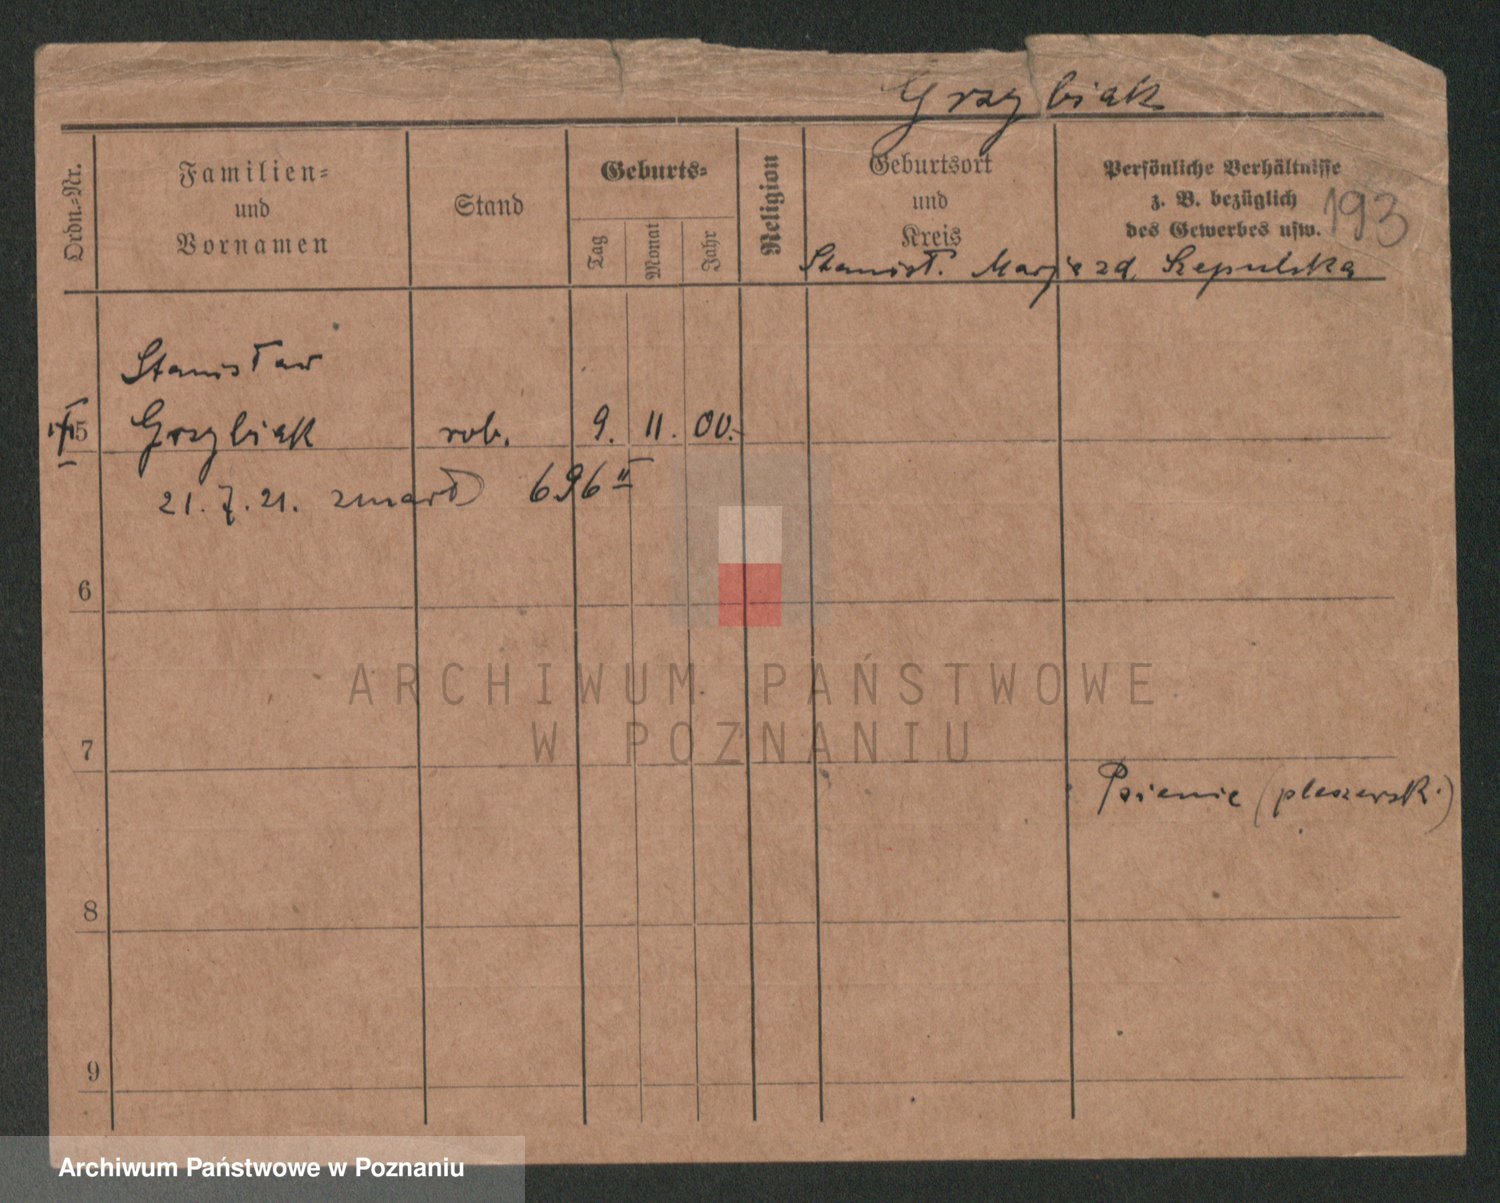 Grzybiak
193
Ordn.-Nr.
Familien-
und
Vornamen
Stand
Geburts-
Tag
Monat
Jahr
Religion
Geburtsort
und
Kreis
Persönliche Verhältnisse
z. B. bezüglich
des Gewerbes usw.
Stanisł. Marja zd. Szepulska
Stanisław
5 Grzybiak rob. 9. 11. 00.
21. 7. 21. zmarł 696 II
6
7
Psienie (pleszewsk.)
8
9
ARCHIWUM PAŃSTWOWE
W POZNANIU
Archiwum Państwowe w Poznaniu